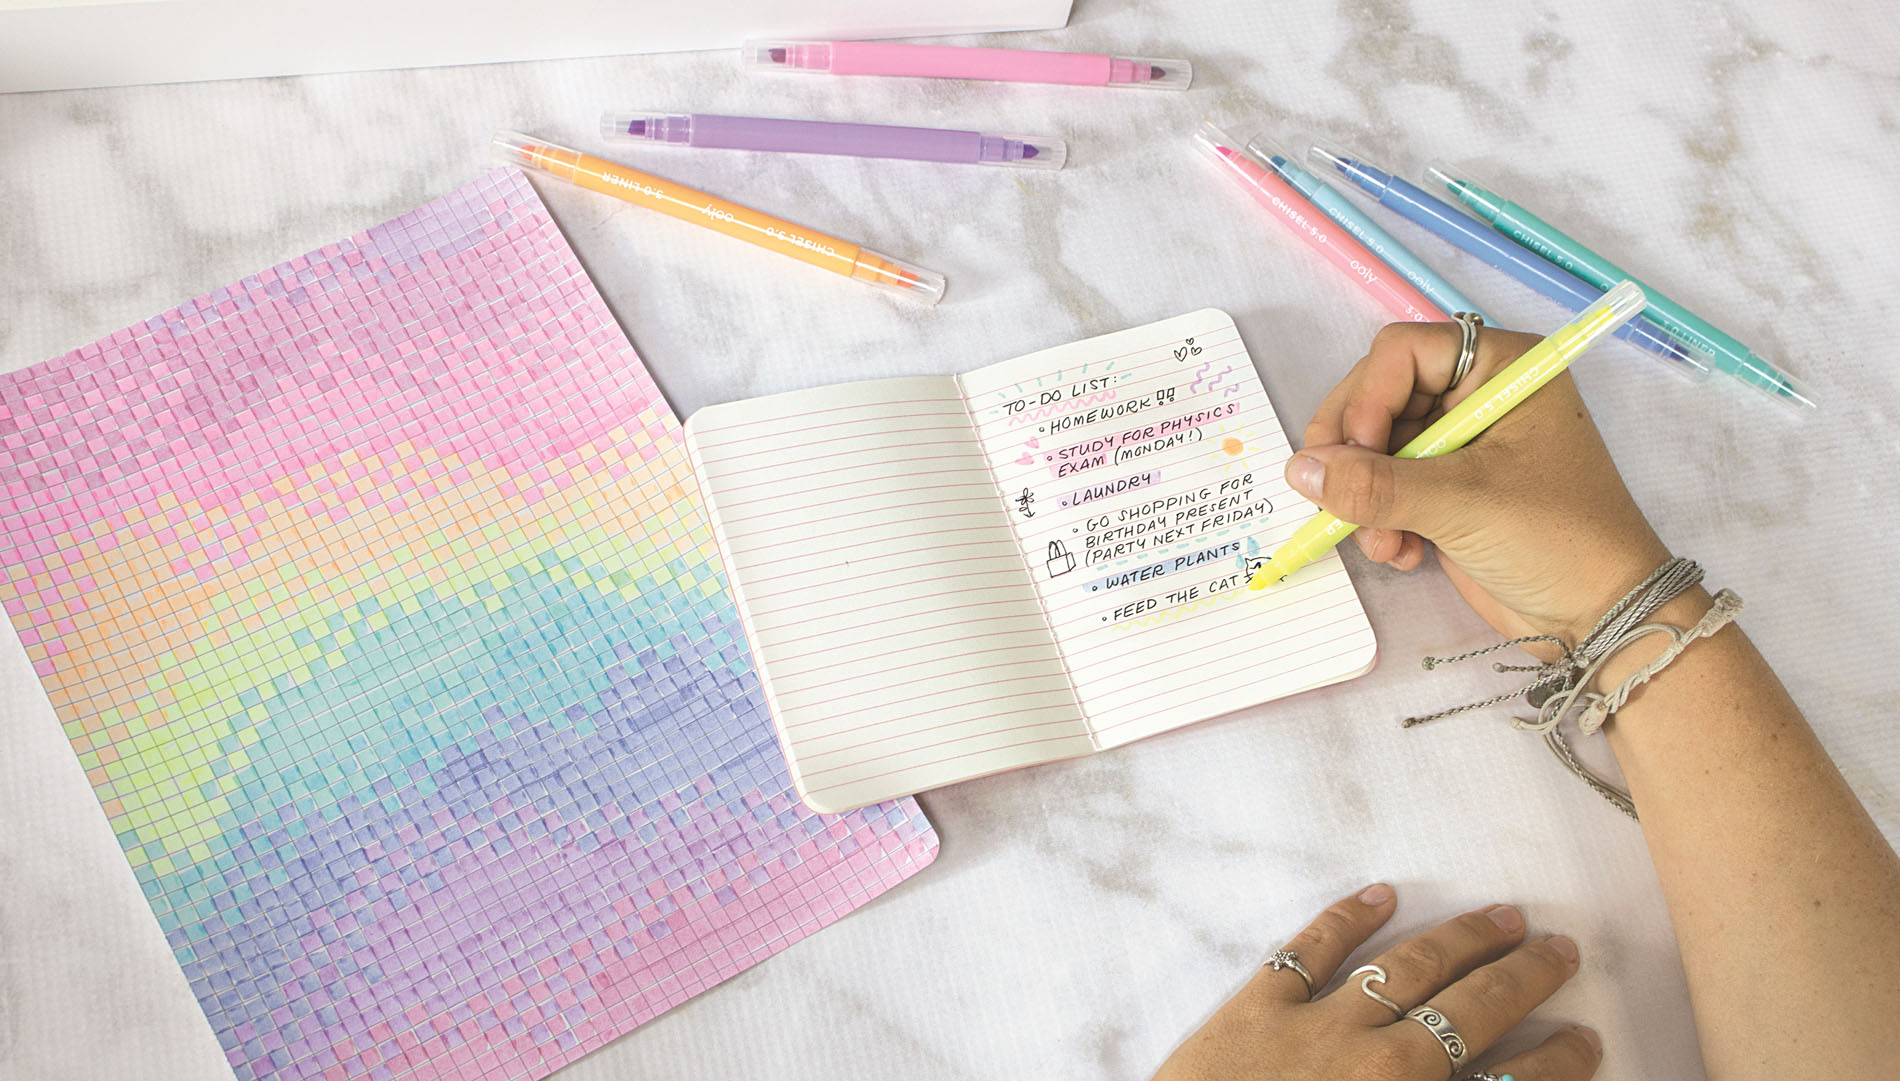 TO-DO LIST:
HOMEWORK!!
STUDY FOR PHYSICS
EXAM (MONDAY!)
LAUNDRY
GO SHOPPING FOR
BIRTHDAY PRESENT
(PARTY NEXT FRIDAY)
WATER PLANTS
FEED THE CAT
3.0 LINER
ooly
CHISEL 5.0
CHISEL 5.0
ooly
CHISEL 5.0
ooly
CHISEL 5.0
CHISEL 5.0